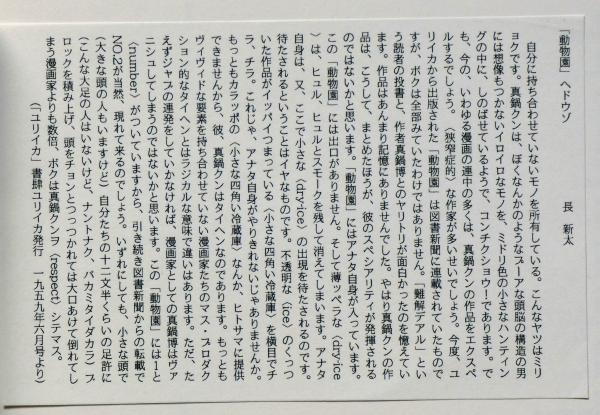 「動物園」ヘドウゾ
長 新太
自分に持ち合わせていないモノを所有している。こんなヤツはミリ
ョクです。真鍋クンは、ぼくなんかのようなプーアな頭脳の構造の男
には想像もつかないイロイロなモノを、ミドリ色の小さなハンティン
グの中に、しのばせているようで、コンチクショウ!であります。で
も、今の、いわゆる漫画の連中の多くは、真鍋クンの作品をエクスペ
ルするでしょう。〈狭窄症的〉な作家が多いせいでしょう。今度、ユ
リイカから出版された「動物園」は図書新聞に連載されていたもので
すが、ボクは全部みていたわけではありません。「難解デアル」とい
う読者の投書と、作者真鍋博とのヤリトリが面白かったのを憶えてい
ます。作品はあんまり記憶にありませんでした。やはり真鍋クンの作
品は、こうして、まとめたほうが、彼のスペシアリティが発揮される
のではないかと思います。「動物園」にはアナタ自身が入っています。
この「動物園」には出口がありません。そして薄ッペラな〈dry-ice
〉は、ヒュル、ヒュルとスモークを残して消えてしまいます。アナタ
自身は、又、ここで小さな〈dry-ice〉の出現を待たされるのです。
待たされるということはイヤなものです。不透明な〈ice〉のくっつ
いた作品がイッパイつまっている〈小さな四角い冷蔵庫〉を横目でチ
ラ、チラ。これじゃ、アナタ自身がやりきれないじゃありませんか。
もっともカラッポの〈小さな四角い冷蔵庫〉なんか、ヒトサマに提供
できませんから、彼、真鍋クンはタイヘンなのであります。もっとも
ヴィヴィドな要素を持ち合わせていない漫画家たちのマス・プロダク
ション的なタイヘンとはラジカルな意味で違いはあります。ただ、た
えずジャブの連発をしていかなければ、漫画家としての真鍋博はヴァ
ニシュしてしまうのではないかと思います。この「動物園」には1と
〈number〉がついていますから、引き続き図書新聞からの転載で
NO.2が当然、現れて来るのでしょう。いずれにしても、小さな頭で
(大きな頭の人もいますけど)自分たちの十二文半くらいの足許に
(こんな大足の人はいないけど、ナントナク、バカミタイダカラ)ブ
ロックを積み上げ、頭をチョンとつつかれては大口あけて倒れてし
まう漫画家よりも数倍、ボクは真鍋クンヲ〈respect〉シテマス。
(「ユリイカ」書肆ユリイカ発行 一九五九年六月号より)